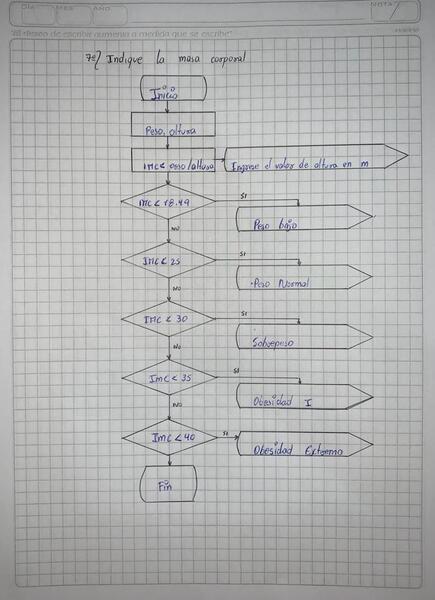 DÍA MES AÑO NOTA
"El deseo de escribir aumenta a medida que se escribe"
7=) Indique la masa corporal
Inicio
Peso, altura
IMC < peso/altura
Ingrese el valor de altura en m
IMC < 18.49
SI
Peso bajo
NO
IMC < 25
SI
Peso Normal
NO
IMC < 30
SI
Sobrepeso
NO
IMC < 35
SI
Obesidad I
NO
IMC < 40
SI
Obesidad Extrema
Fin